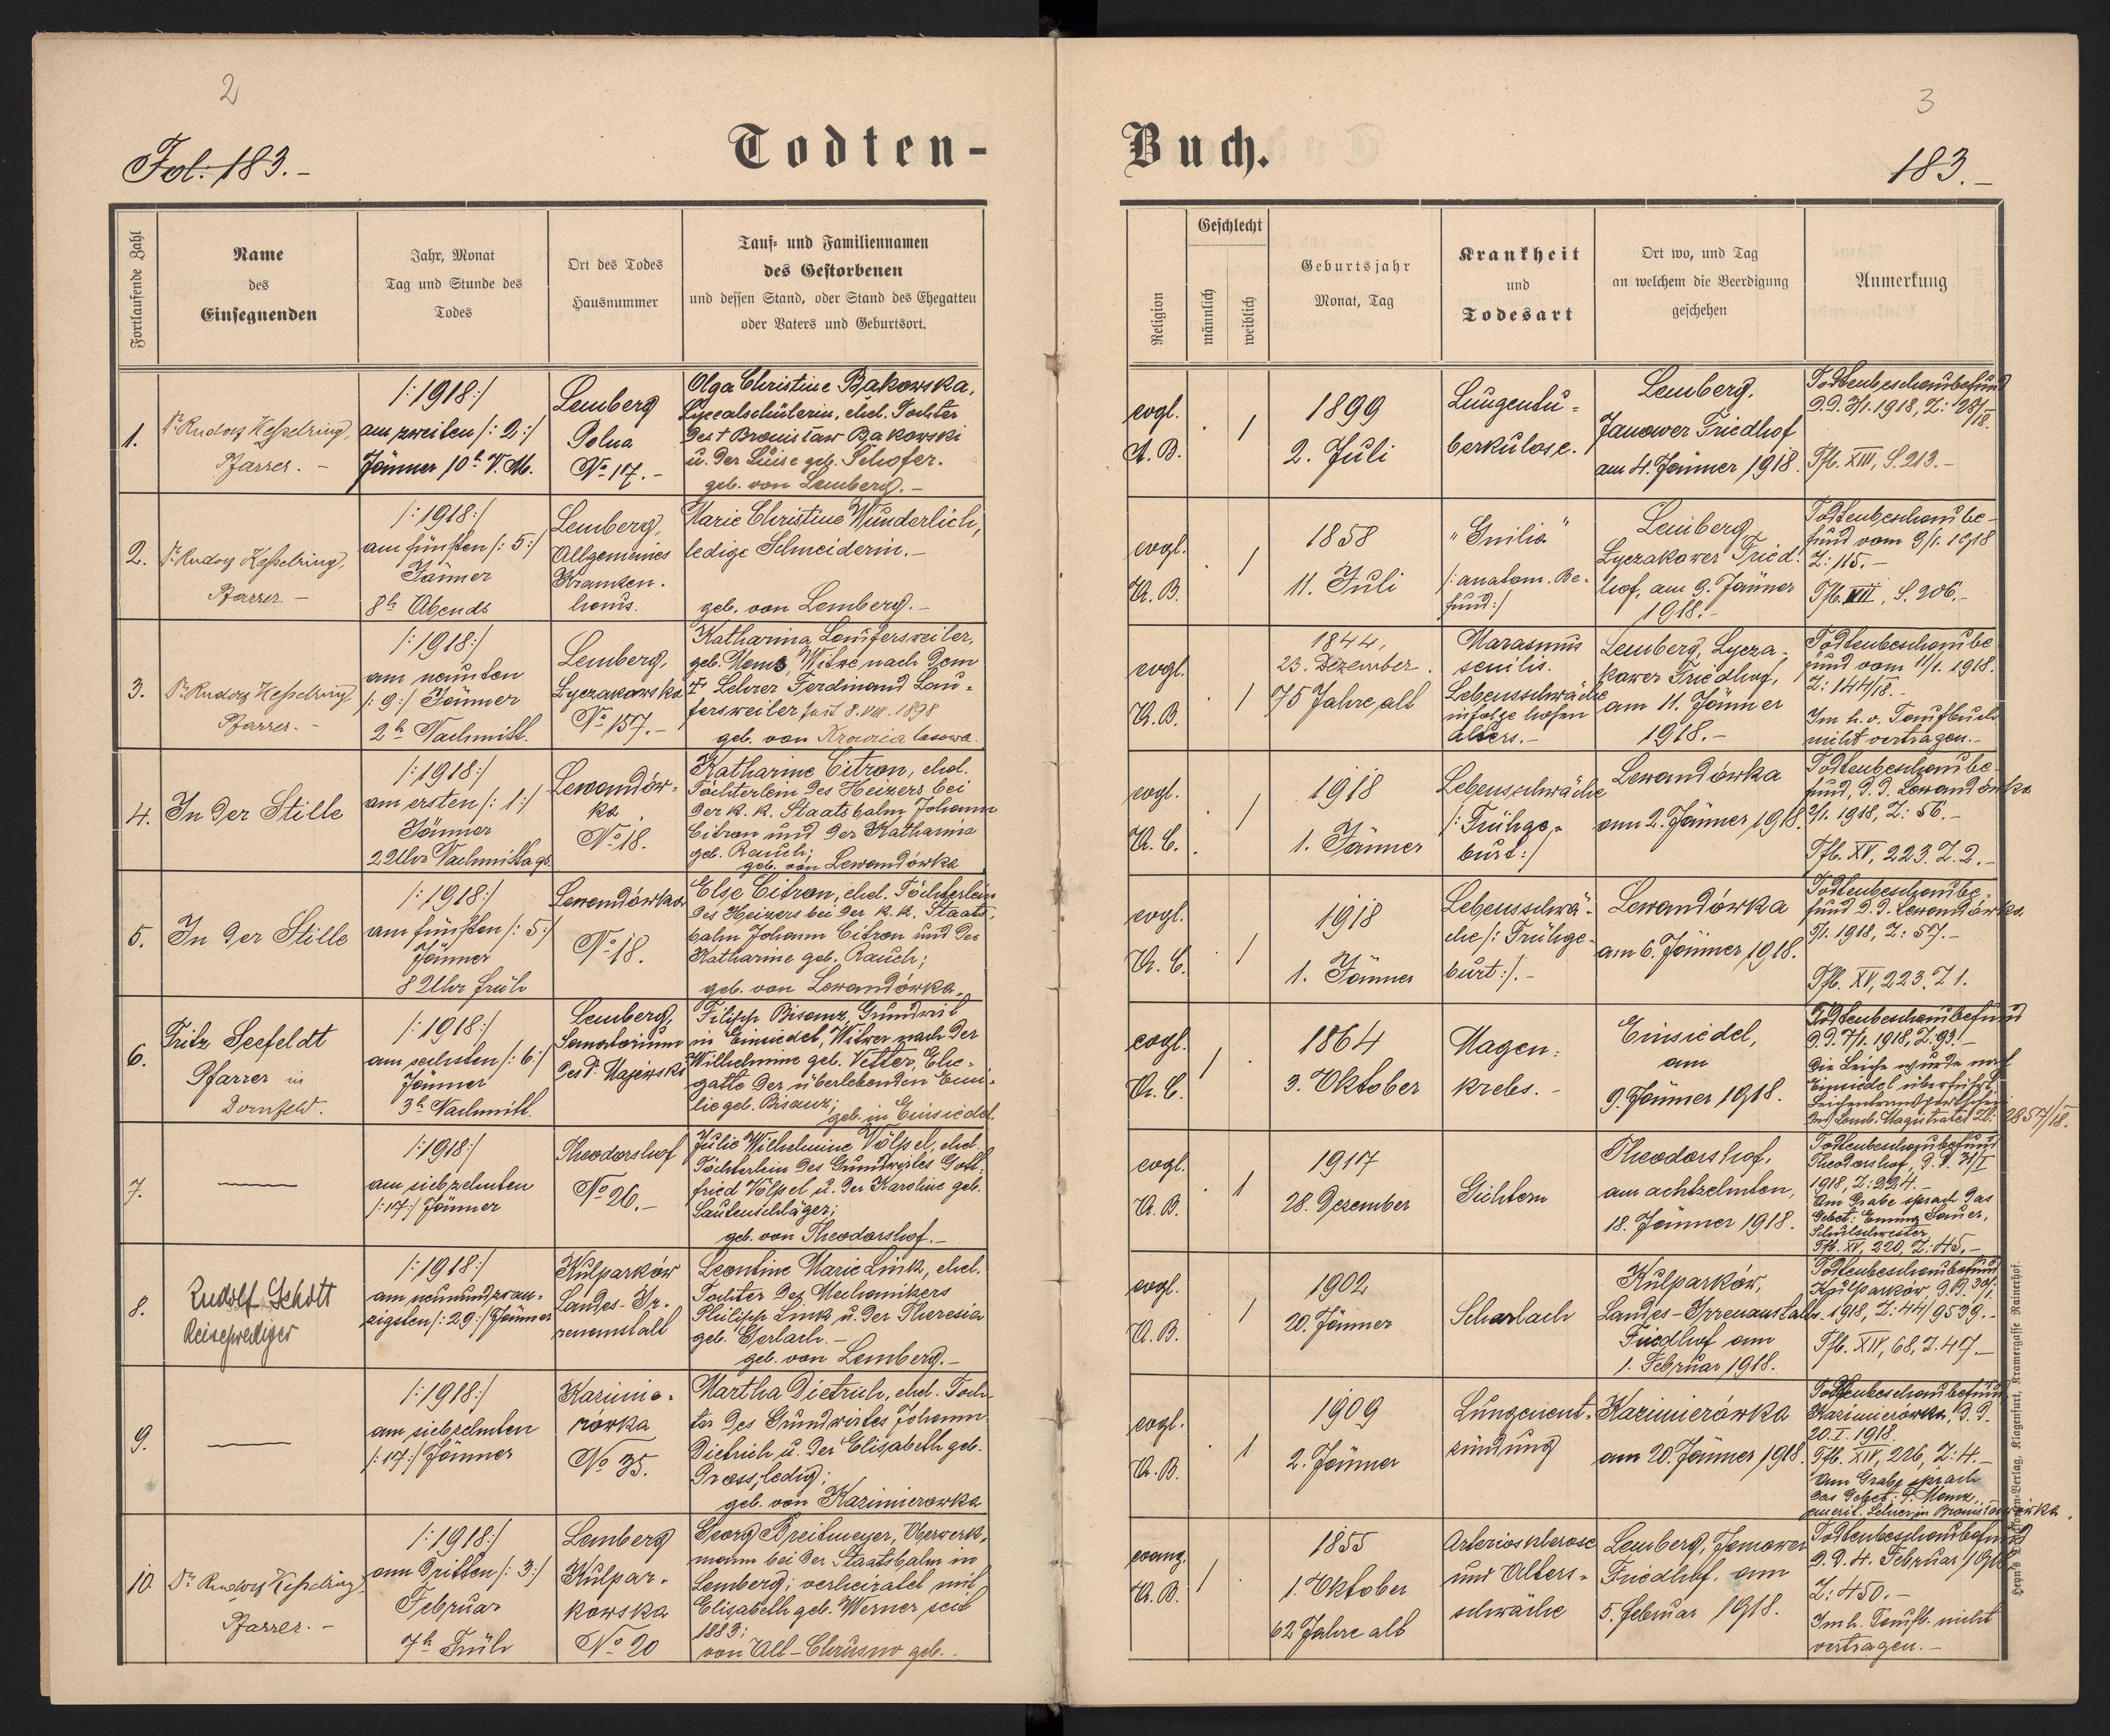 2
Fol. 183.-
Todten-
Fortlaufende Zahl
Name
des
Einsegnenden
Jahr, Monat
Tag und Stunde des
Todes
Ort des Todes
Hausnummer
Tauf- und Familiennamen
des Gestorbenen
und dessen Stand, oder Stand des Ehegatten
oder Vaters und Geburtsort.
1.
Dr Rudolf Kesselring,
Pfarrer.-
/:1918:/
am zweiten /:2:/
Jänner 10h V. M.
Lemberg
Polna
No 117.-
Olga Christine Bakowska,
Lycealschülerin, ehel. Tochter
des † Bronisław Bakowski
u. der Luise geb. Schofer.
geb. von Lemberg.-
2.
Dr Rudolf Kesselring,
Pfarrer-
/:1918:/
am fünften /:5:/
Jänner
8h Abends
Lemberg,
Allgemeines
Kranken-
haus.
Marie Christine Wunderlich,
ledige Schneiderin.-
geb. von Lemberg.-
3.
Dr Rudolf Kesselring
Pfarrer.-
/:1918:/
am neunten
/:9:/ Jänner
2h Nachmitt.
Lemberg,
Lyczakowska
No 157.-
Katharina Laufersweiler,
geb. Witwe nach dem
† Lehrer Ferdinand Lau-
fersweiler seit 8. VIII. 1898
geb. von lasowa.
4.
In der Stille
/:1918:/
am ersten /:1:/
Jänner
2 Uhr Nachmittags
Lewandów-
ka
No 18.
Katharine Citron, ehel.
Töchterlein des Heizers bei
der k. k. Staatsbahn Johann
Citron und der Katharina
geb. Rauch;
geb. von Lewandówka
5.
In der Stille
/:1918:/
am fünften /:5:/
Jänner
8 Uhr früh
Lewandówka
No 18.
Else Citron, ehel. Töchterlein
des Heizers bei der k. k. Staats-
bahn Johann Citron und der
Katharine geb. Rauch;
geb. von Lewandówka.
6.
Fritz Seefeldt
Pfarrer in
Dornfeld.
/:1918:/
am sechsten /:6:/
Jänner
3h Nachmitt.
Lemberg,
Sanatorium
des Dr Majewski
Filipp Bisanz, Grundwirt
in Einsiedel, Witwer nach der
Wilhelmine geb. Vetter, Ehe-
gatte der überlebenden Emi-
lie geb. Bisanz;
geb. in Einsiedel.
7.
/:1918:/
am siebzehnten
/:17:/ Jänner
Theodorshof
No 26.-
Julie Wilhelmine Völpel, ehel.
Töchterlein des Grundwirtes Gott-
fried Völpel u. der Karoline geb.
Lautenschläger;
geb. von Theodorshof.-
8.
Rudolf Schott
Reiseprediger
/:1918:/
am neunundzwan-
zigsten /:29:/ Jänner
Kulparków
Landes-Ir-
renanstalt
Leontine Marie Link, ehel.
Tochter des Mechanikers
Philipp Link u. der Theresia
geb. Gerlach.-
geb. von Lemberg.-
9.
/:1918:/
am siebzehnten
/:17:/ Jänner
Kazimie-
rówka
No 35.
Martha Dietrich, ehel. Toch-
ter des Grundwirtes Johann
Dietrich u. der Elisabeth geb.
Gross, ledig;
geb. von Kazimierowka
10.
Dr Rudolf Kesselring,
Pfarrer.-
/:1918:/
am dritten /:3:/
Februar
7h Früh
Lemberg
Kulpar-
kowska
No 20
Georg Breitmeyer, Oberwerk-
mann bei der Staatsbahn in
Lemberg; verheiratet mit
Elisabeth geb. Werner seit
1883;
von Alt-Chrusno geb.-
3
Buch.
183.-
Religion
Geschlecht
männlich
weiblich
Geburtsjahr
Monat, Tag
Krankheit
und
Todesart
Ort wo, und Tag
an welchem die Beerdigung
geschehen
Anmerkung
evgl.
A. B.
. 1
1899
2. Juli
Lungentu-
berkulose.
Lemberg,
Janower Friedhof
am 4. Jänner 1918.
Todtenbeschaubefund
d. d. 3/1. 1918, Z: 28/18.
Tfb. XIII, S. 213.-
evgl.
A. B.
. 1
1858
11. Juli
/: anatom. Be-
fund:/
Lemberg,
Lyczakower Fried-
hof, am 9. Jänner
1918.-
Todtenbeschaube-
fund vom 9/1. 1918
Z: 115.-
Tfb. VII, S. 206.-
evgl.
A. B.
. 1
1844,
23. Dezember.
75 Jahre alt
Marasmus
senilis.
Lebensschwäche
infolge hohen
Alters.-
Lemberg, Lycza-
kower Friedhof,
am 11. Jänner
1918.-
Todtenbeschaube
fund vom 11/1. 1918.
Z: 144/18.-
Im h. o. Taufbuch
nicht vertragen.-
evgl.
A. C.
. 1
1918
1. Jänner
Lebensschwäche
/: Frühge-
burt:/
Lewandówka
am 2. Jänner 1918.
Todtenbeschaube-
fund, d. d. Lewandówka
2/1. 1918, Z: 56.-
Tfb. XV, 223. Z. 2.-
evgl.
A. C.
. 1
1918
1. Jänner
Lebensschwä-
che /: Frühge-
burt:/.-
Lewandówka
am 6. Jänner 1918.
Todtenbeschaube-
fund d. d. Lewandówka
5/1. 1918, Z: 57.-
Tfb. XV, 223, Z 1.
evgl.
A. C.
1 .
1864
3. Oktober
Magen-
krebs.-
Einsiedel,
am
9. Jänner 1918.
Todtenbeschaubefund
d. d. 7/1. 1918, Z. 93.-
Die Leiche wurde nach
Einsiedel überführt.
Leichentransportschein
des Lemb. Magistrates Zl: 2857/18.
evgl.
A. B.
. 1
1917
28. Dezember
Gichtern
Theodorshof,
am achtzehnten,
18. Jänner 1918.
Todtenbeschaubefund
Theodorshof, d. d. 31/I
1918, Z: 224.-
Am Grabe sprach das
Gebet: Emma Sauer,
Schulschwester,
Tfb. XV, 220, Z: 45.-
evgl.
A. B.
. 1
1902
20. Jänner
Scharlach
Kulparków,
Landes-Irrenanstalts-
Friedhof am
1. Februar 1918.
Todtenbeschaubefund
Kulparków, d. d. 30/1.
1918, Z: 44/9539.-
Tfb. XIV, 68, Z. 47.-
evgl.
A. B.
. 1
1909
2. Jänner
Lungenent-
zündung
Kazimierówka
am 20. Jänner 1918.
Todtenbeschaubefund
Kazimierówka, d. d.
20. I. 1918.
Tfb. XIV, 226, Z: 4.-
Am Grabe sprach
das Gebet:
emerit. Lehrer in Bronisławówka.
evang.
A. B.
1 .
1855
1. Oktober
62 Jahre alt
Arteriosklerose
und Alters-
schwäche
Lemberg, Janower
Friedhof, am
5. Februar 1918.
Todtenbeschaubefund
d. d. 4. Februar 1918
Z: 450.-
Im h. Taufb. nicht
vertragen.-
Verlag, Klagenfurt, Kramergasse Rainerhof.